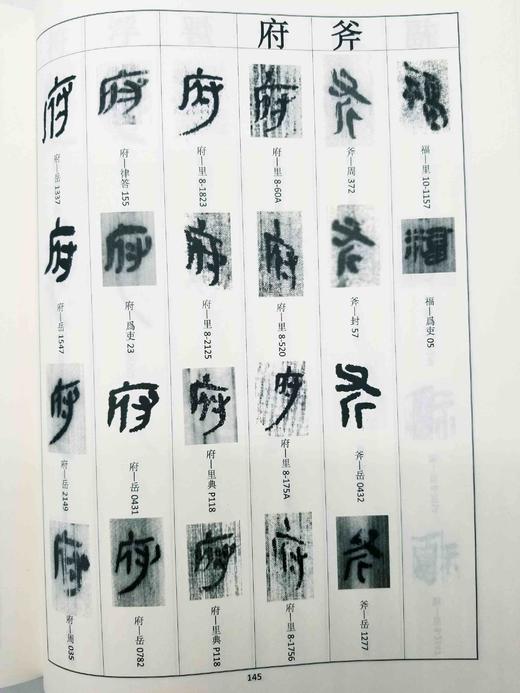 福—里 10-1157
福—爲吏 05
斧
斧—周 372
斧—封 57
斧—岳 0432
斧—岳 1277
府
府—里 8-60A
府—里 8-520
府—里 8-175A
府—里 8-1756
府—里 8-1823
府—里 8-2125
府—里典 P118
府—里典 P118
府—律答 155
府—爲吏 23
府—岳 0431
府—岳 0782
府—岳 1337
府—岳 1547
府—岳 2149
府—周 035
145